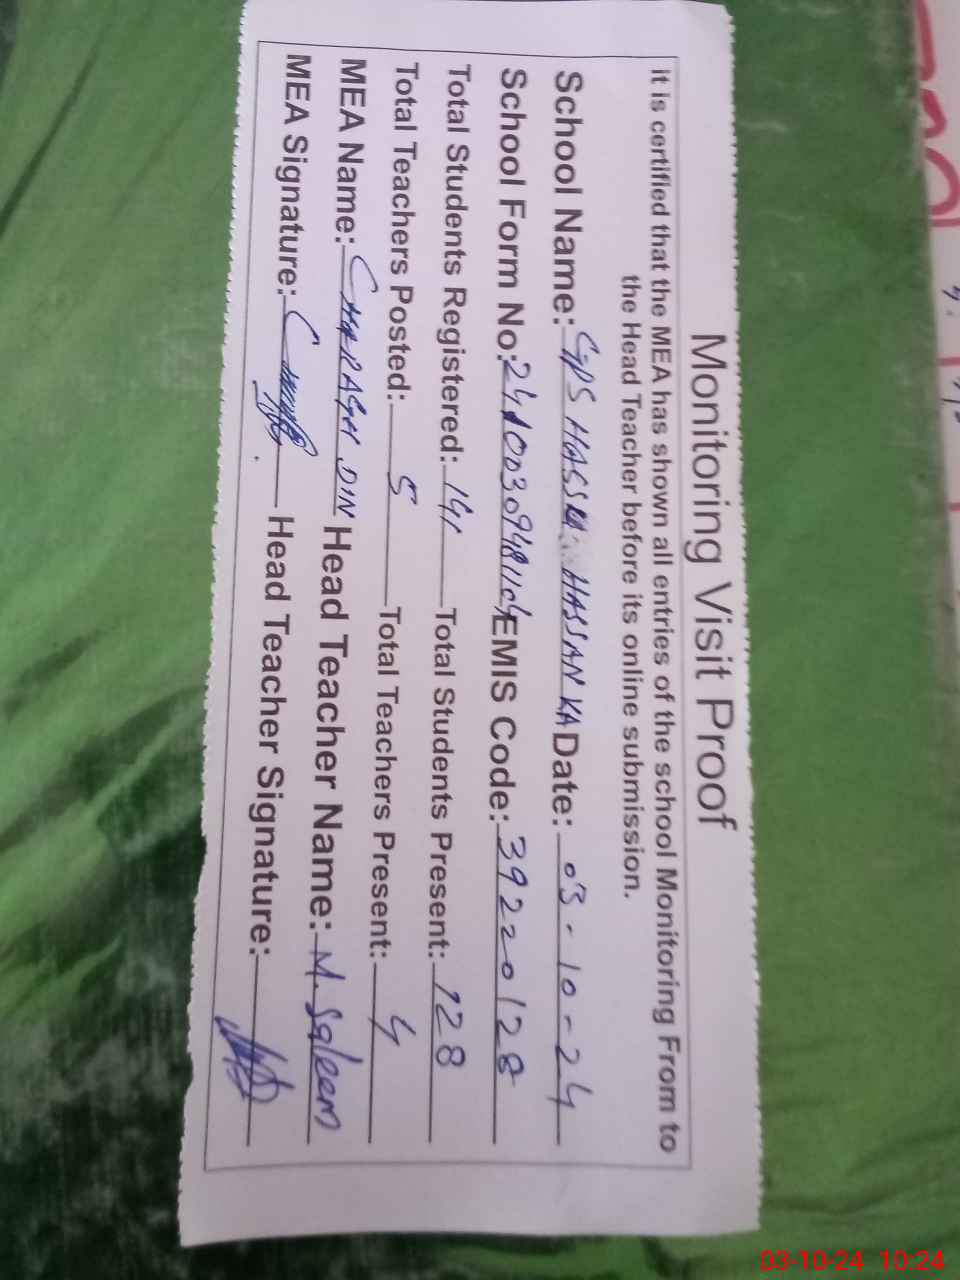 Monitoring Visit Proof
it is certified that the MEA has shown all entries of the school Monitoring From to
the Head Teacher before its online submission.
School Name: GPS HASSU HASSAN KA Date: 03-10-24
School Form No: EMIS Code: 39220128
Total Students Registered: 141 Total Students Present: 128
Total Teachers Posted: 5 Total Teachers Present: 4
MEA Name: CHARAGH DIN Head Teacher Name: M. Saleem
MEA Signature: Head Teacher Signature:
03-10-24 10:24